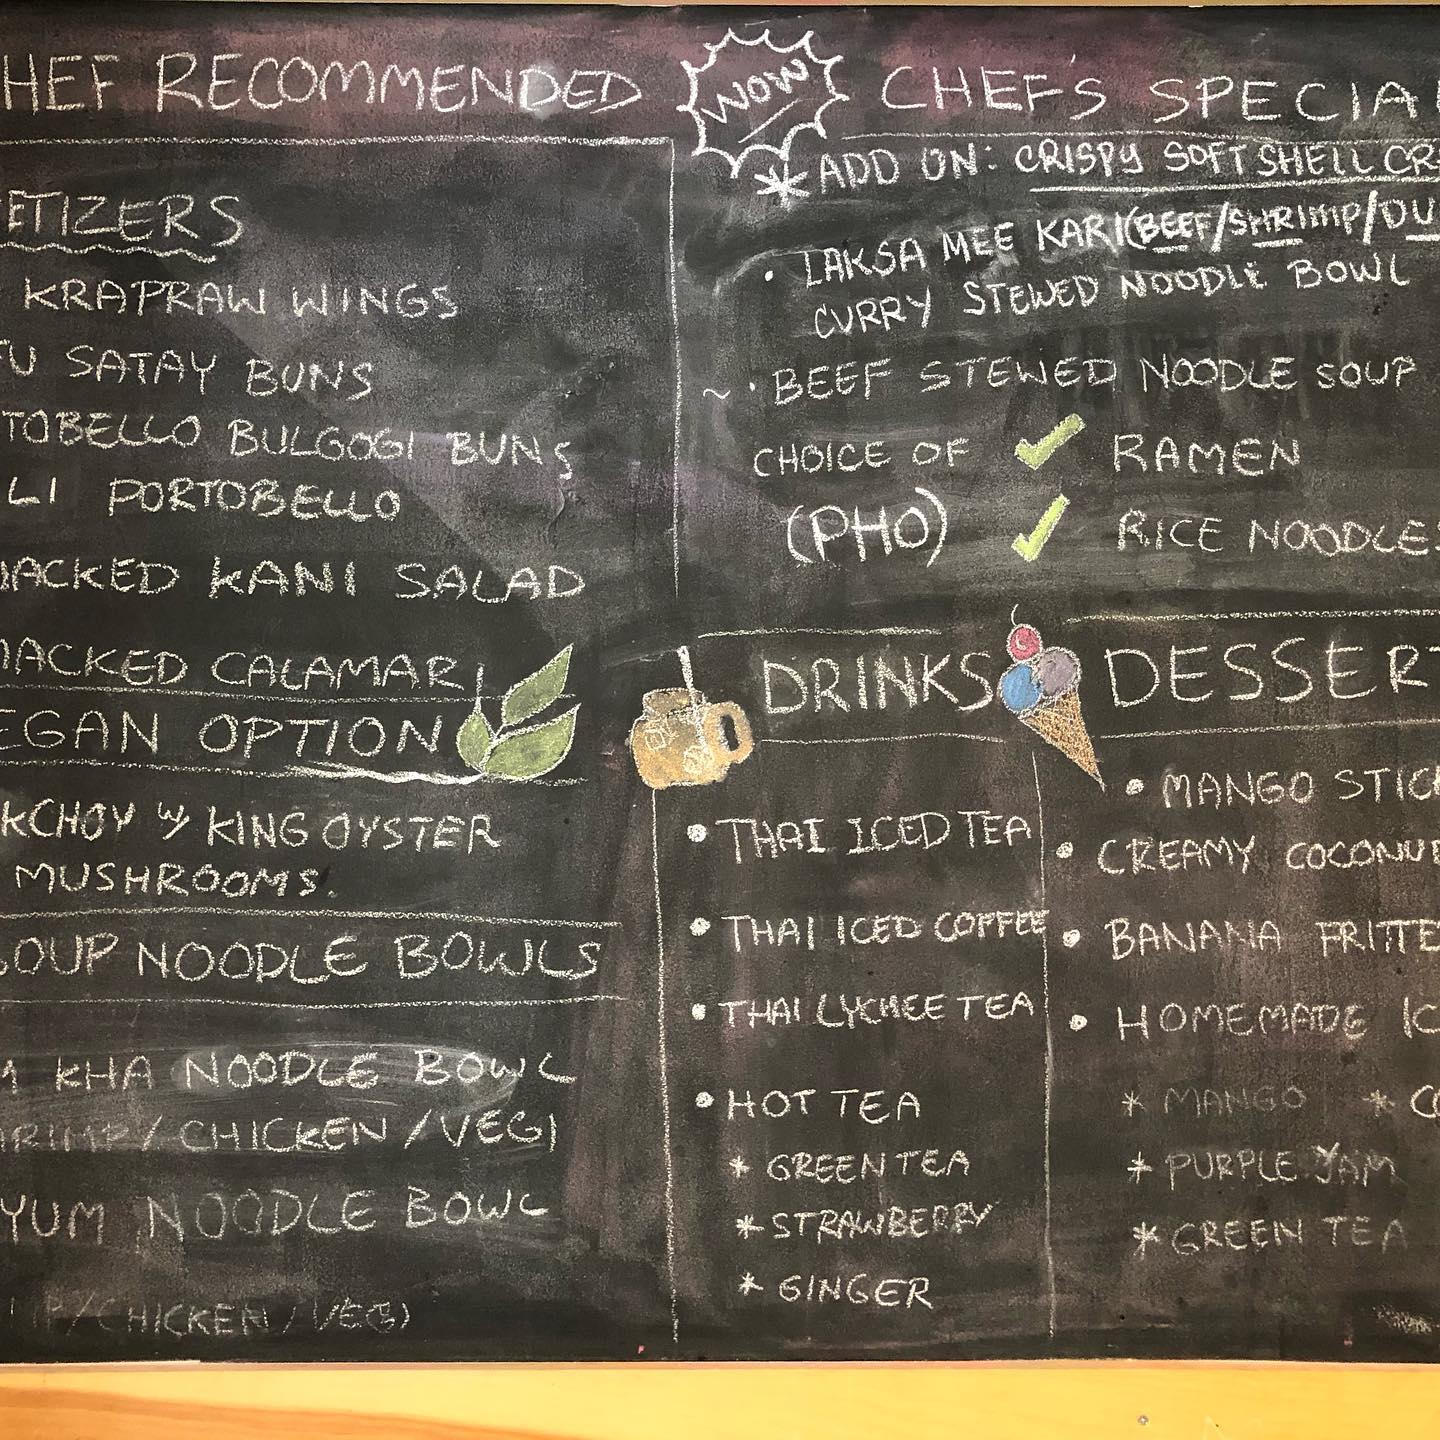 HEF RECOMMENDED
ETIZERS
KRAPRAW WINGS
FU SATAY BUNS
TOBELLO BULGOGI BUNS
LI PORTOBELLO
JACKED KANI SALAD
JACKED CALAMARI
EGAN OPTION
KCHOY W/ KING OYSTER
MUSHROOMS.
SOUP NOODLE BOWLS
M KHA NOODLE BOWL
HRIMP/CHICKEN/VEG)
YUM NOODLE BOWL
MP/CHICKEN/VEG)
WOW
CHEF'S SPECIAL
* ADD ON: CRISPY SOFT SHELL CR
• LAKSA MEE KARI(BEEF/SHRIMP/DU
CURRY STEWED NOODLE BOWL
~ • BEEF STEWED NOODLE SOUP
CHOICE OF ✓ RAMEN
(PHO) ✓ RICE NOODLES
DRINKS
• THAI ICED TEA
• THAI ICED COFFEE
• THAI LYCHEE TEA
• HOT TEA
* GREEN TEA
* STRAWBERRY
* GINGER
DESSERT
• MANGO STICK
• CREAMY COCONUT
• BANANA FRITTE
• HOMEMADE IC
* MANGO * CO
* PURPLE YAM
* GREEN TEA